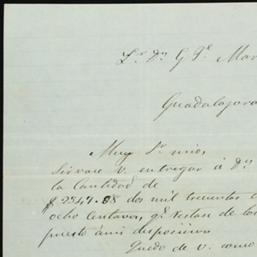 Sr. Dn. G
Guadalajara
Muy Sr. mio,
Sirvase V. entregar á Dn.
la Cantidad de
dos mil
ocho Centavos, qe. restan de
puesto á mi disposicion
Quedo de V. como